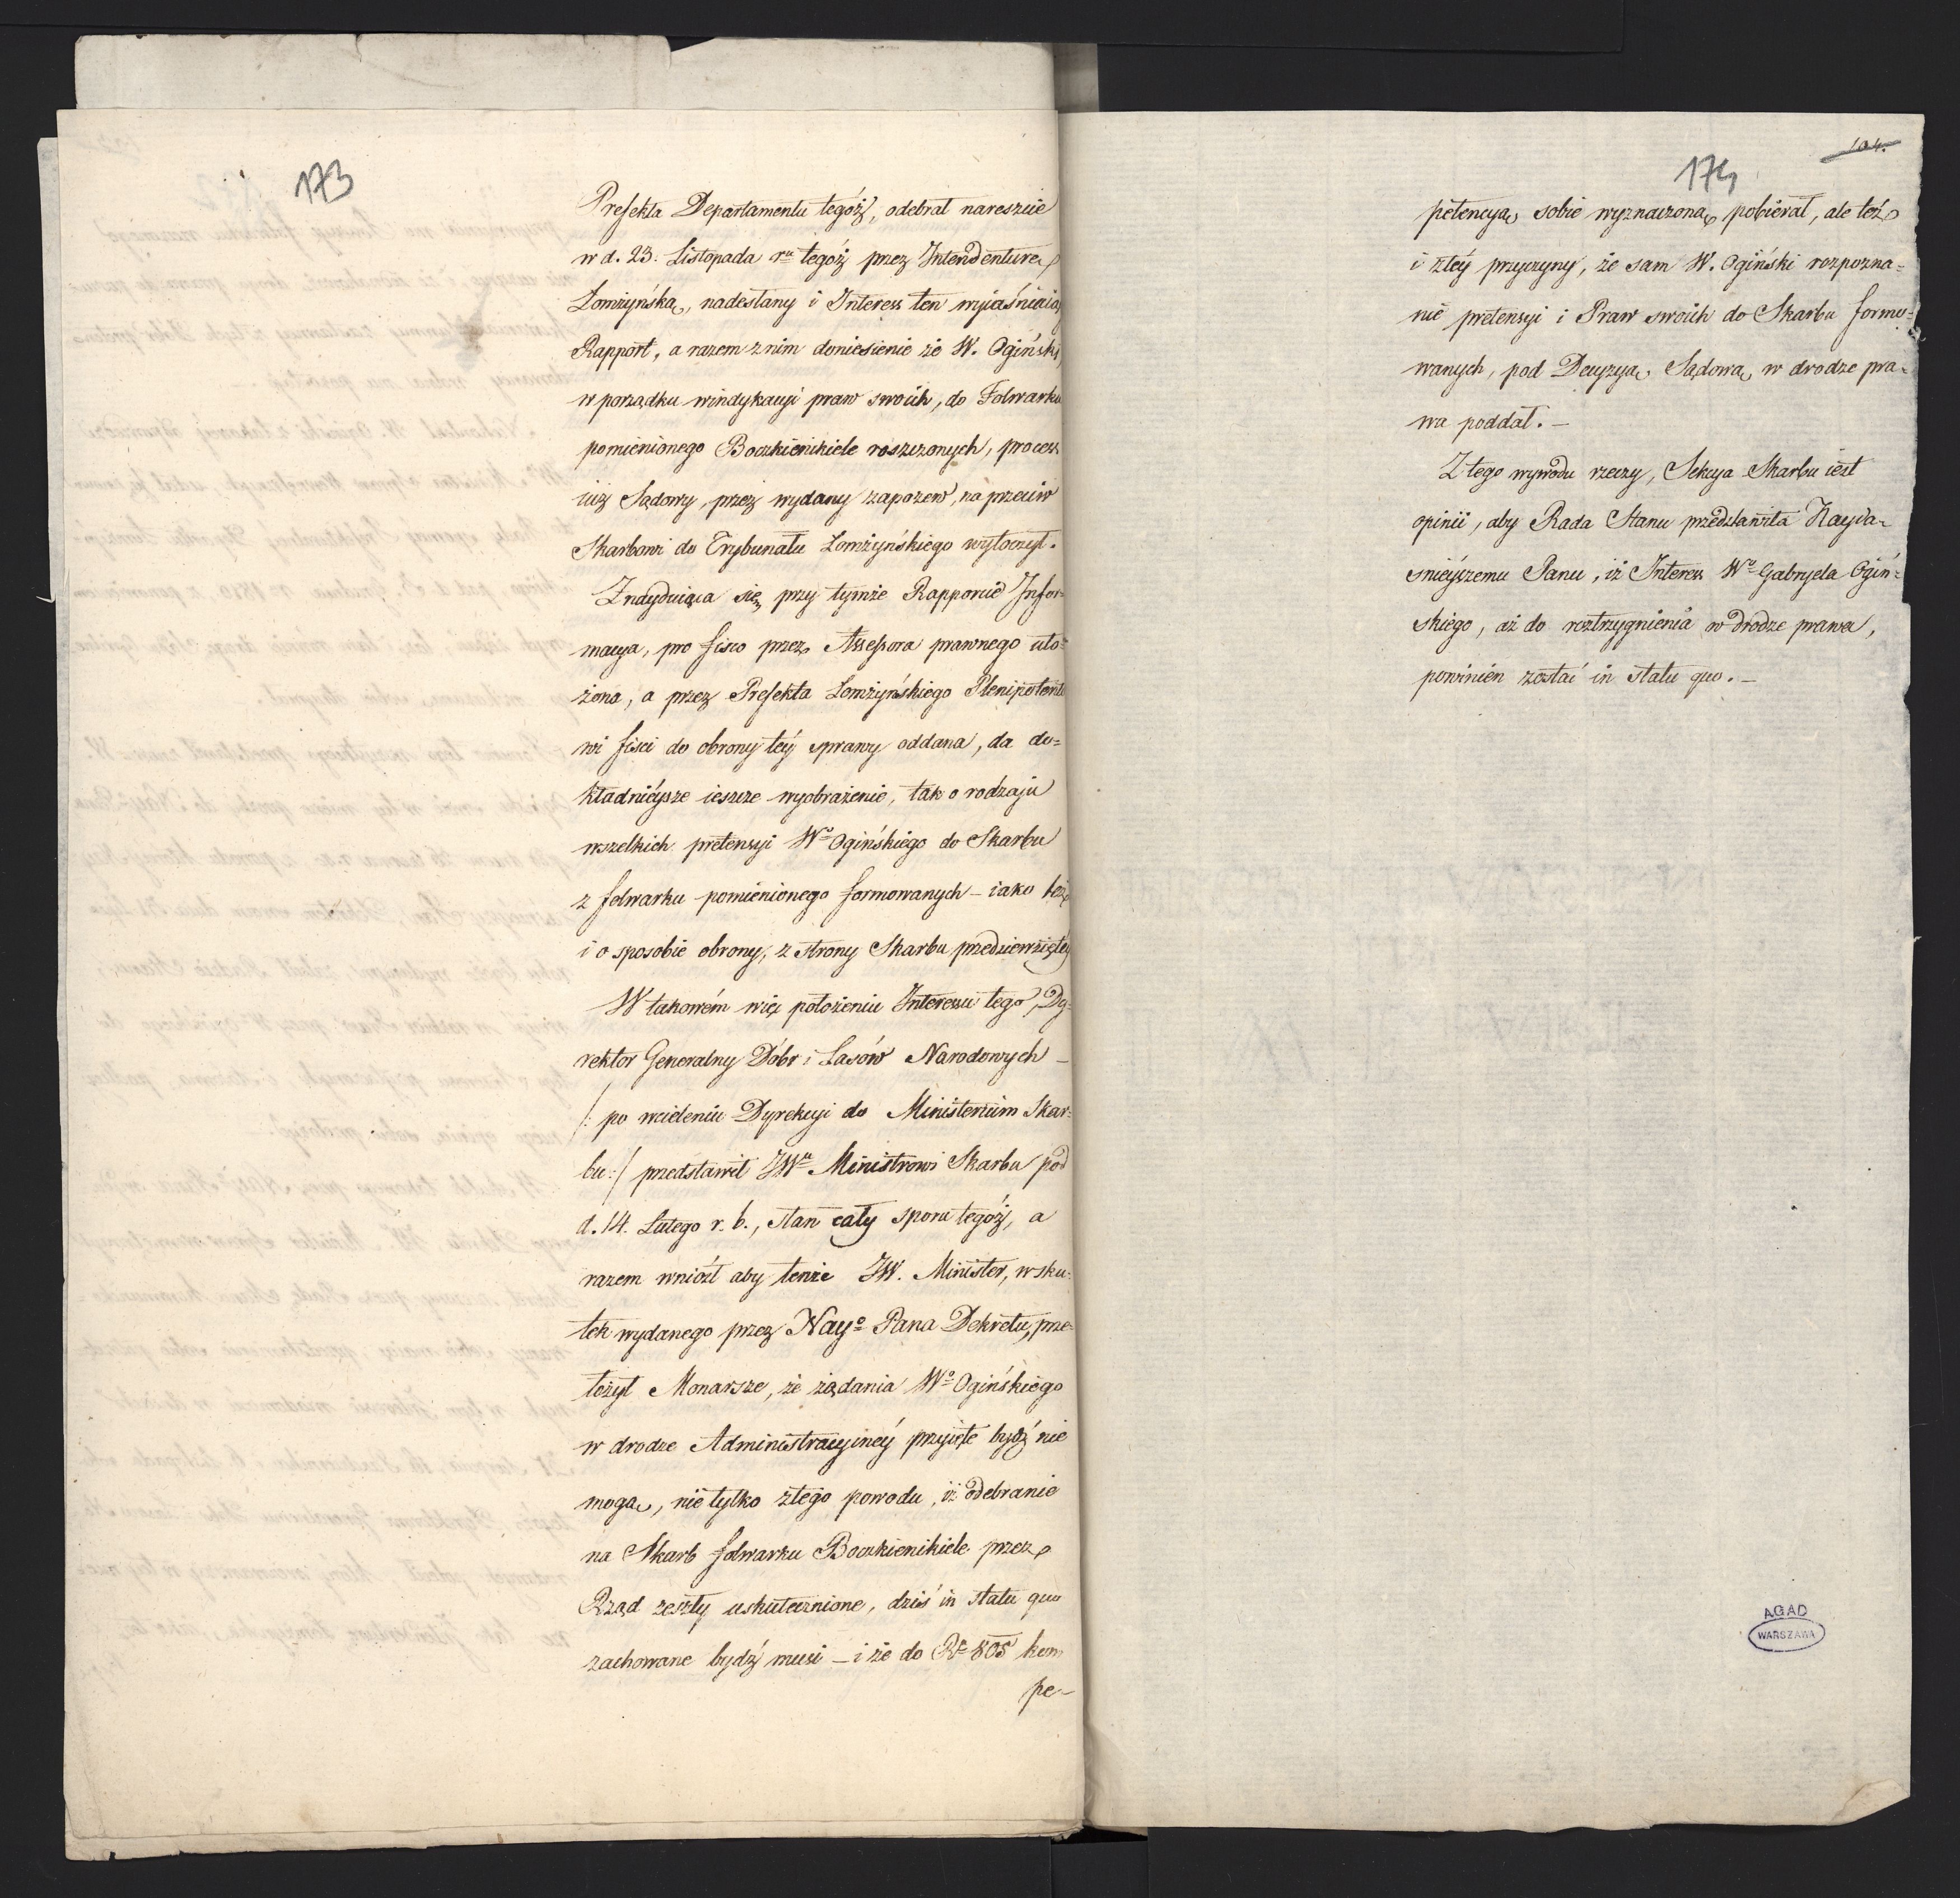 173
Prefekta Departamentu tegóż, odebrał nareszcie
w d. 23. Listopada r.u tegóż przez Intendenturę
Łomżyńską, nadesłany i Interess ten wyiaśniaiąy
Rapport, a razem z nim doniesienie że W. Ogiński,
w porządku windykacyi praw swoich, do Folwarku
pomienionego Boczkienikiele roszczonych, process
iuż Sądowy, przez wydany zapozew, na przeciw
Skarbowi do Trybunału Łomżyńskiego wytoczył.
Znayduiąca się przy tymże Rapporcie Infor=
macya, pro fisco przez Assessora prawnego uło=
żona, a przez Prefekta Łomżyńskiego Plenipotento
wi fisci do obrony téy sprawy oddana, da do=
kładniéysze ieszcze wyobrażenie, tak o rodzaju
wszelkich pretensyi Wo Ogińskiego do Skarbu
z folwarku pomienionego formowanych – iako też
i o sposobie obrony, z strony Skarbu przedziewziętéy
W takowém więc położeniu Interessu tego, Dy=
rektor Generalny Dóbr i Lasów Narodowych –
/: po wcieleniu Dyrekcyi do Ministerium Skar=
bu :/ przedstawił JWu Ministrowi Skarbu pod
d. 14. Lutego r. b., stan cały sporu tegóż, a
razem wniósł aby tenże JW. Minister, w sku=
tek wydanego przez Nayo Pana Dekretu, prze=
łożył Monarsze, że żądania Wo Ogińskiego
w drodze Administracyinéy przyięte bydź nie
mogą, nie tylko z tego powodu, iż odebranie
na Skarb folwarku Boczkienikiele przez
Rząd zeszły uskutecznione, dziś in statu quo
zachowane bydź musi – i że do R. 805 kom
pe–
104.
174
petencyą sobie wyznaczoną pobierał, ale też
i z téy przyczyny, że sam W. Ogiński rozpozna=
nie pretensyi i Praw swoich do Skarbu formo=
wanych, pod Decyzyą Sądową w drodze pra=
wa poddał. –
Z tego wywodu rzeczy, Sekcya Skarbu iest
opinii, aby Rada Stanu przedstawiła Nayia=
snieyszemu Panu, iż Interess Wo Gabryela Ogiń=
skiego, aż do roztrzygnienia w drodze prawa,
powinien zostać in statu quo. –
AGAD
WARSZAWA